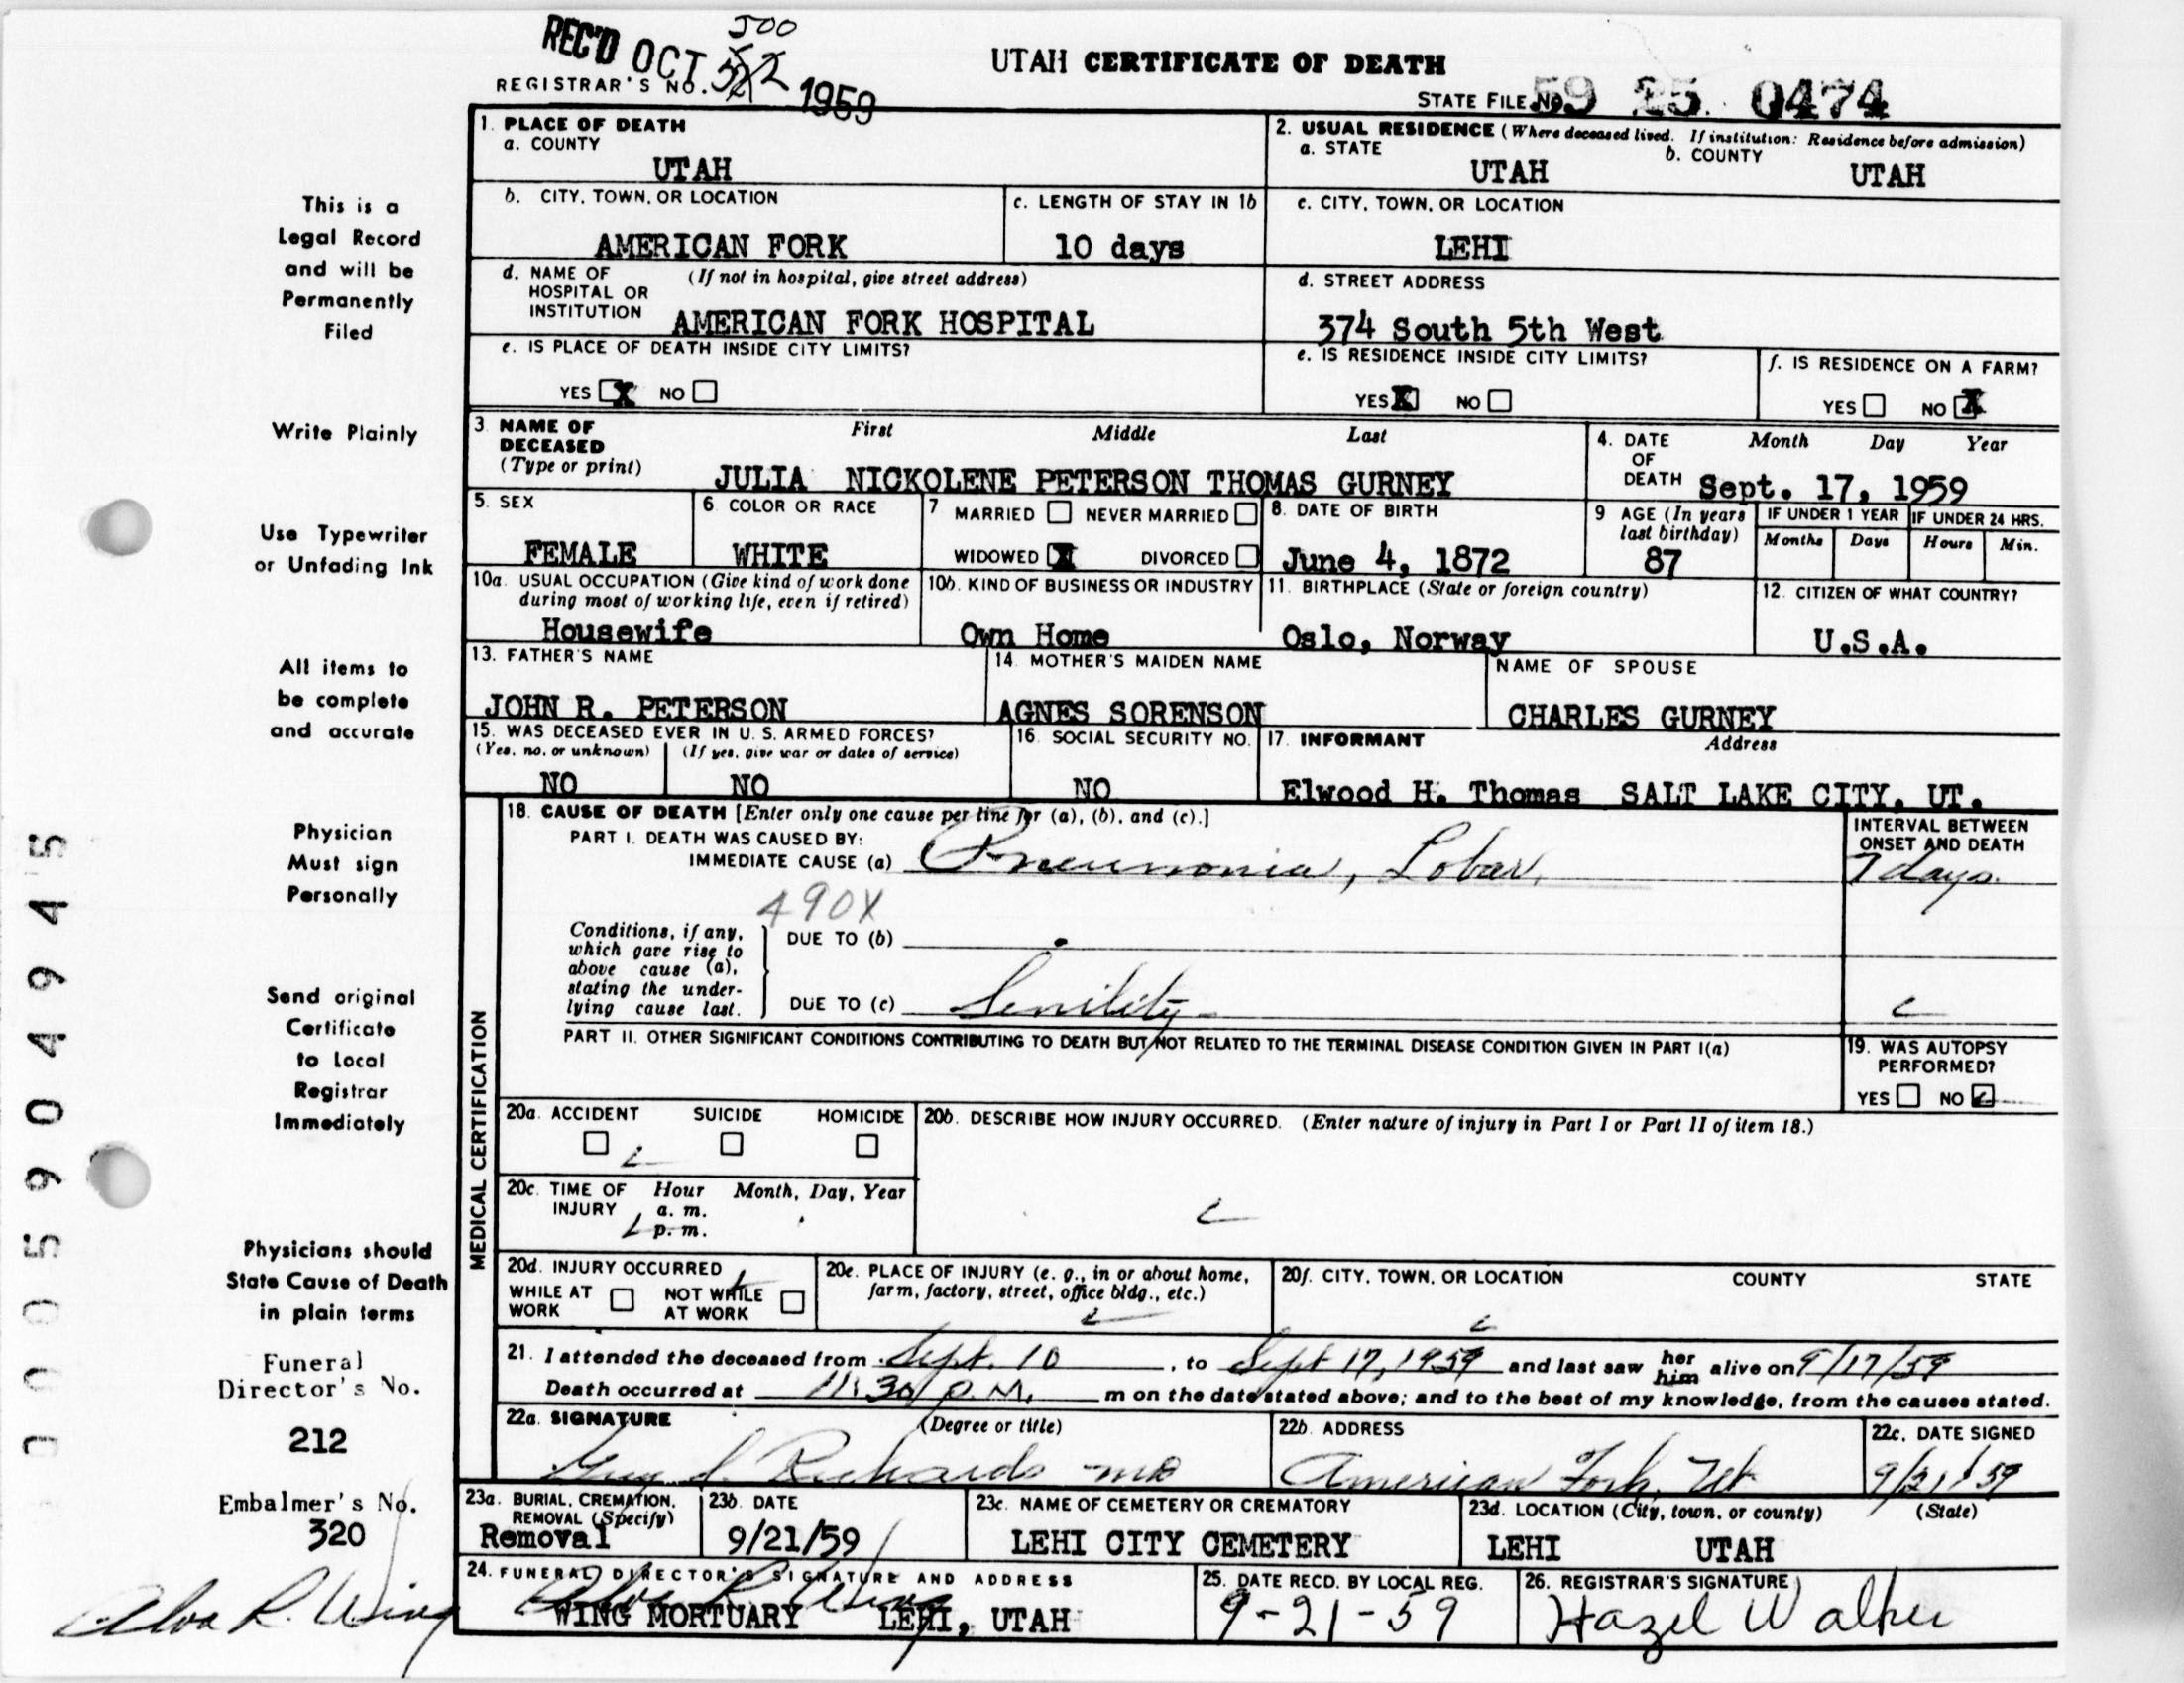 REC'D OCT 2 1959
500
REGISTRAR'S NO.
UTAH CERTIFICATE OF DEATH
STATE FILE NO. 59 25 0474
1. PLACE OF DEATH
a. COUNTY
UTAH
2. USUAL RESIDENCE (Where deceased lived. If institution: Residence before admission)
a. STATE
UTAH
b. COUNTY
UTAH
b. CITY, TOWN, OR LOCATION
AMERICAN FORK
c. LENGTH OF STAY IN 1b
10 days
c. CITY, TOWN, OR LOCATION
LEHI
d. NAME OF HOSPITAL OR INSTITUTION
(If not in hospital, give street address)
AMERICAN FORK HOSPITAL
d. STREET ADDRESS
374 South 5th West
e. IS PLACE OF DEATH INSIDE CITY LIMITS?
YES X NO
e. IS RESIDENCE INSIDE CITY LIMITS?
YES X NO
f. IS RESIDENCE ON A FARM?
YES NO X
3. NAME OF DECEASED (Type or print)
First Middle Last
JULIA NICKOLENE PETERSON THOMAS GURNEY
4. DATE OF DEATH
Month Day Year
Sept. 17, 1959
5. SEX
FEMALE
6. COLOR OR RACE
WHITE
7 MARRIED NEVER MARRIED
WIDOWED X DIVORCED
8. DATE OF BIRTH
June 4, 1872
9 AGE (In years last birthday)
87
IF UNDER 1 YEAR
Months Days
IF UNDER 24 HRS.
Hours Min.
10a. USUAL OCCUPATION (Give kind of work done during most of working life, even if retired)
Housewife
10b. KIND OF BUSINESS OR INDUSTRY
Own Home
11. BIRTHPLACE (State or foreign country)
Oslo, Norway
12. CITIZEN OF WHAT COUNTRY?
U.S.A.
13. FATHER'S NAME
JOHN R. PETERSON
14. MOTHER'S MAIDEN NAME
AGNES SORENSON
NAME OF SPOUSE
CHARLES GURNEY
15. WAS DECEASED EVER IN U. S. ARMED FORCES?
(Yes, no, or unknown) (If yes, give war or dates of service)
NO NO
16. SOCIAL SECURITY NO.
NO
17. INFORMANT Address
Elwood H. Thomas SALT LAKE CITY, UT.
MEDICAL CERTIFICATION
18. CAUSE OF DEATH [Enter only one cause per line for (a), (b), and (c).]
PART I. DEATH WAS CAUSED BY:
IMMEDIATE CAUSE (a) Pneumonia, Lobar.
INTERVAL BETWEEN ONSET AND DEATH
7 days.
490X
Conditions, if any, which gave rise to above cause (a), stating the underlying cause last.
DUE TO (b)
DUE TO (c) Senility
PART II. OTHER SIGNIFICANT CONDITIONS CONTRIBUTING TO DEATH BUT NOT RELATED TO THE TERMINAL DISEASE CONDITION GIVEN IN PART I(a)
19. WAS AUTOPSY PERFORMED?
YES NO
20a. ACCIDENT SUICIDE HOMICIDE
20b. DESCRIBE HOW INJURY OCCURRED. (Enter nature of injury in Part I or Part II of item 18.)
20c. TIME OF INJURY
Hour Month, Day, Year
a. m.
p. m.
20d. INJURY OCCURRED
WHILE AT WORK
NOT WHILE AT WORK
20e. PLACE OF INJURY (e. g., in or about home, farm, factory, street, office bldg., etc.)
20f. CITY, TOWN, OR LOCATION COUNTY STATE
21. I attended the deceased from Sept. 10, to Sept 17, 1959 and last saw her him alive on 9/17/59
Death occurred at 11:30 P.M. m on the date stated above; and to the best of my knowledge, from the causes stated.
22a. SIGNATURE (Degree or title)
Guy S. Richards MD
22b. ADDRESS
American Fork, Ut
22c. DATE SIGNED
9/21/59
23a. BURIAL, CREMATION, REMOVAL (Specify)
Removal
23b. DATE
9/21/59
23c. NAME OF CEMETERY OR CREMATORY
LEHI CITY CEMETERY
23d. LOCATION (City, town, or county) (State)
LEHI UTAH
24. FUNERAL DIRECTOR'S SIGNATURE AND ADDRESS
Alva R. Wing
WING MORTUARY LEHI, UTAH
25. DATE RECD. BY LOCAL REG.
9-21-59
26. REGISTRAR'S SIGNATURE
Hazel Walker
This is a
Legal Record
and will be
Permanently
Filed
Write Plainly
Use Typewriter
or Unfading Ink
All items to
be complete
and accurate
Physician
Must sign
Personally
Send original
Certificate
to Local
Registrar
Immediately
Physicians should
State Cause of Death
in plain terms
Funeral
Director's No.
212
Embalmer's No.
320
Alva R. Wing
0005904945